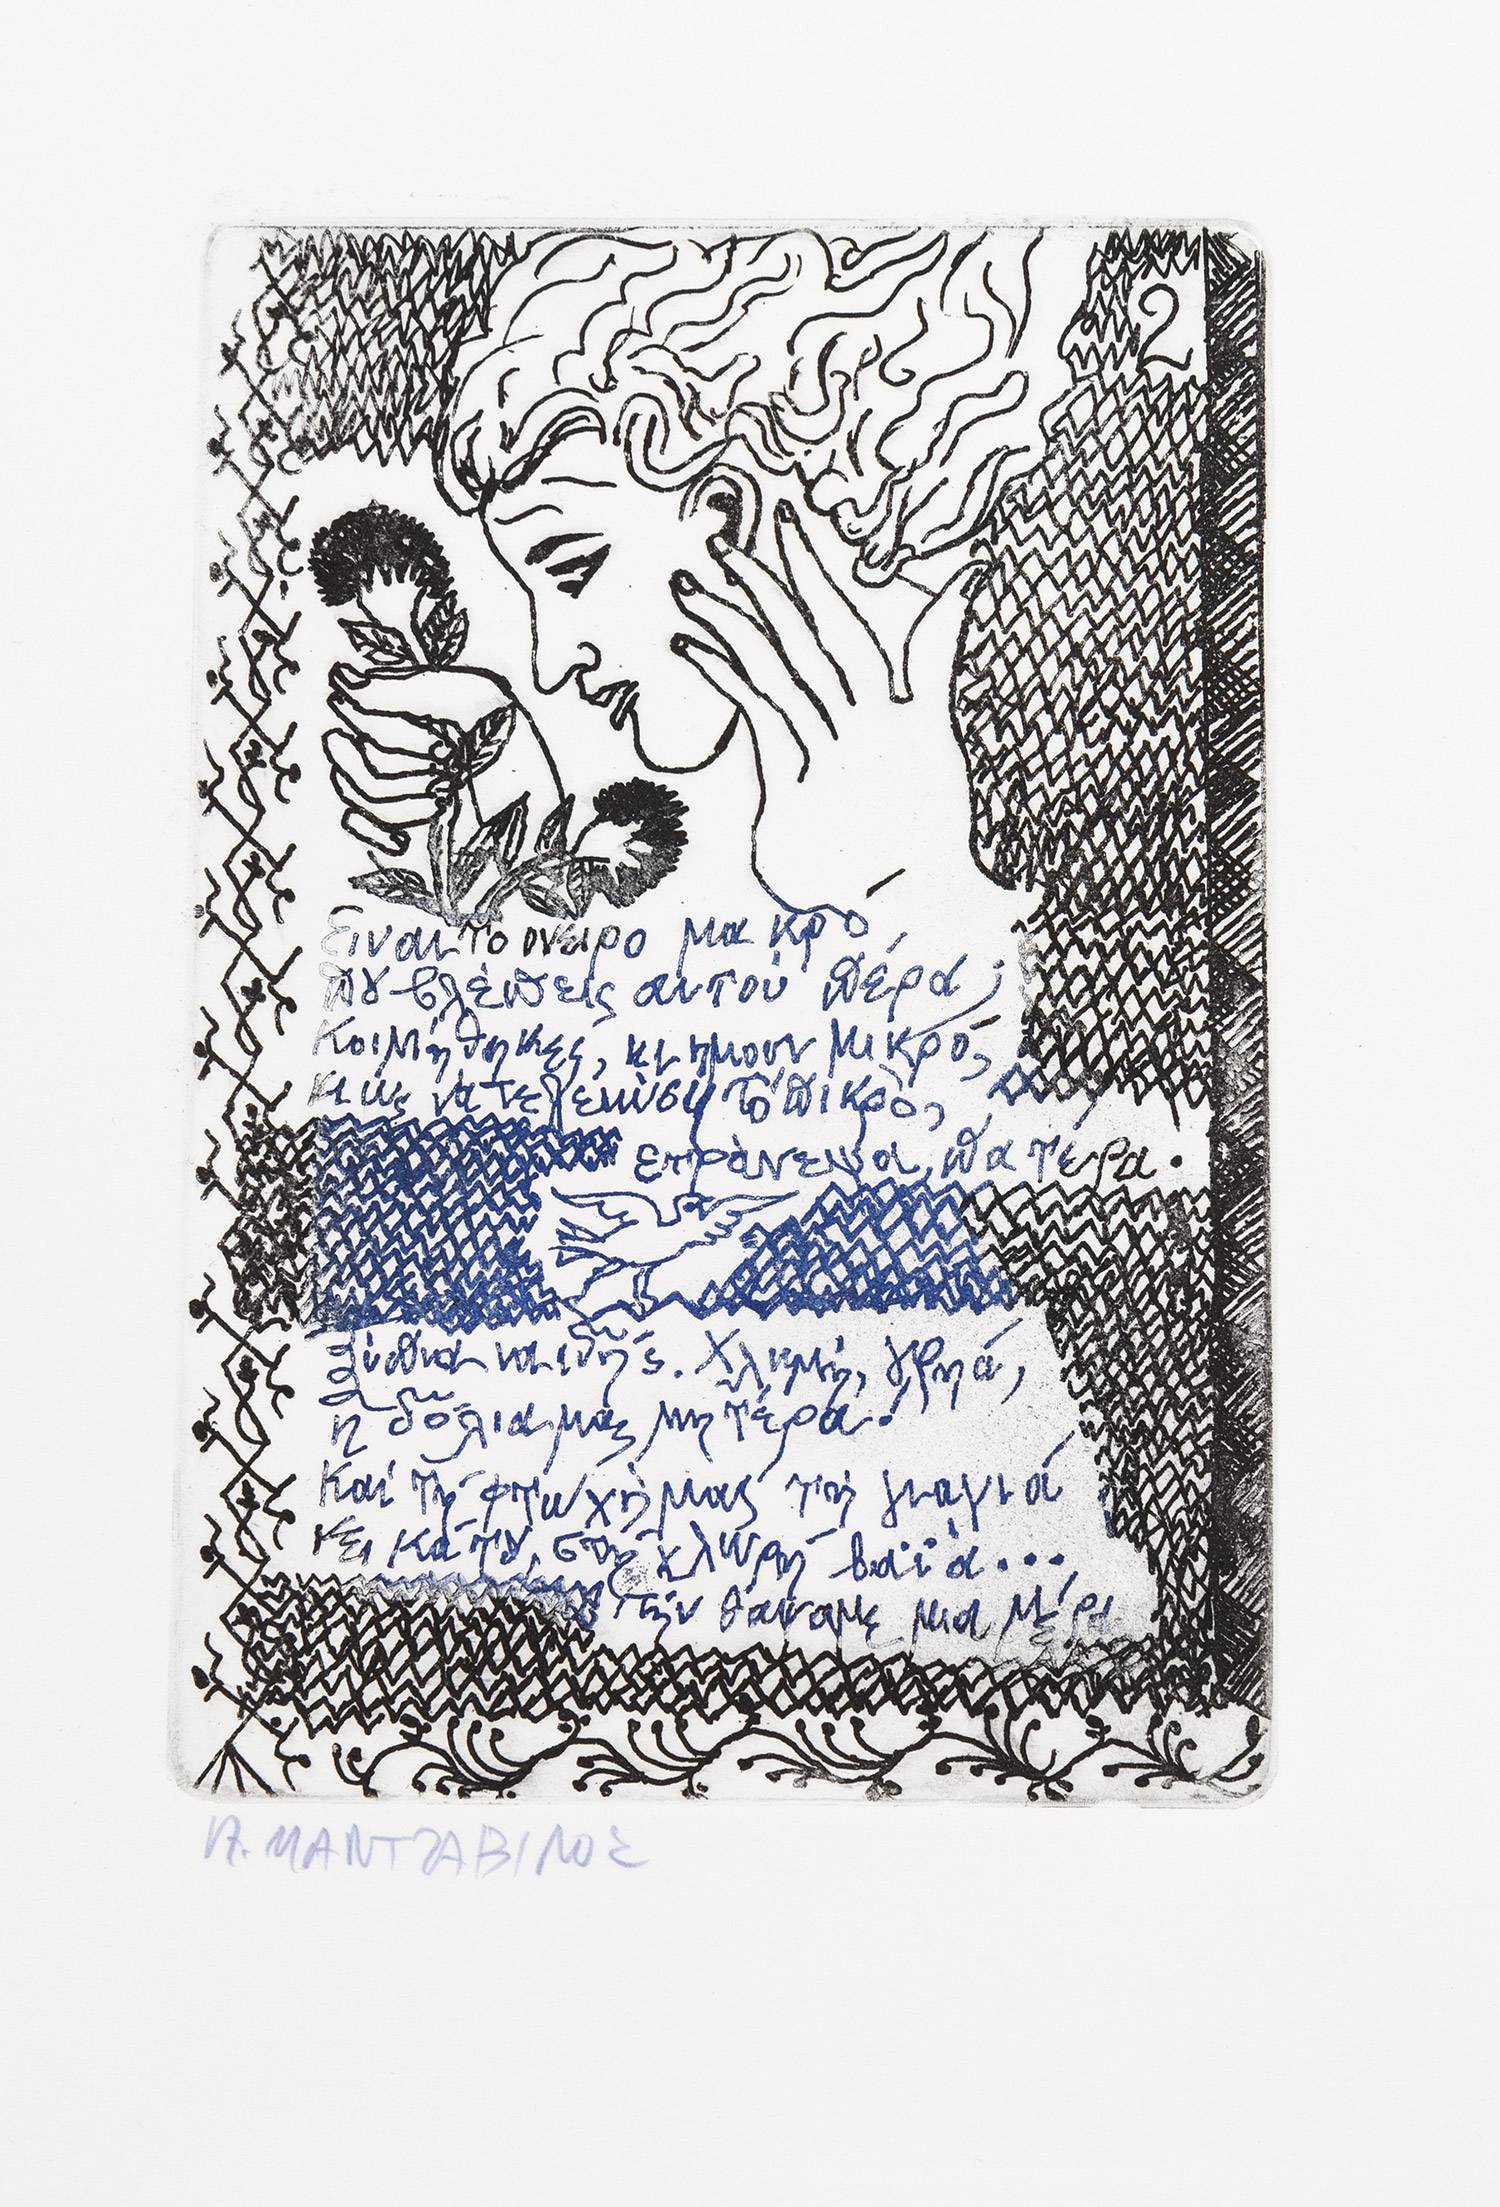 2
Είναι το όνειρο μακρό,
πȣ βλέπεις αυτού πέρα;
Κοιμήθηκες, κι ήμουν μικρό,
κι ως να τελειώση το πικρό,
επράνεψα, πατέρα.
Ξύπνα να ιδής. Χλωμή, γρηά,
η δόλια μας μητέρα.
Και τη φτωχή μας τη γιαγιά
κει κάτȣ, στη χλωρή βαϊά...
την θάψαμε μια μέρα
Π. ΜΑΝΤΖΑΒΙΝΟΣ